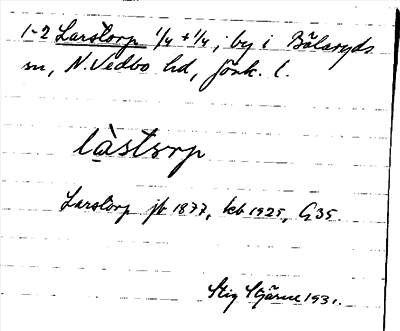 1-2 Larstorp 1/4 + 1/4, by i Bälaryds
sn, N. Vedbo hd, Jönk. l.
la̱storp
Larstorp jb 1877, kb 1925, G 35.
Stig Stjärne 1931.